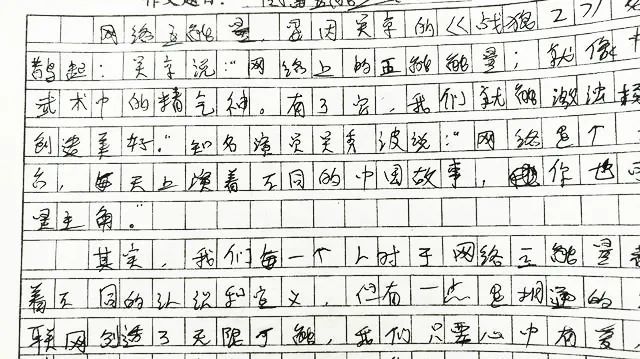 作文题目：
网络正能量，是因吴京的《战狼2》
起：吴京说："网络上的正能能量；就像
武术中的精气神。有了它，我们就能激浊
创造美好。"知名演员吴秀波说："网络是个
台，每天上演着不同的中国故事，你也
是主角。"
其实，我们每一个人对于网络正能量
着不同的认识和定义，但有一点是相通的
联网创造了无限可能，我们只要心中有爱